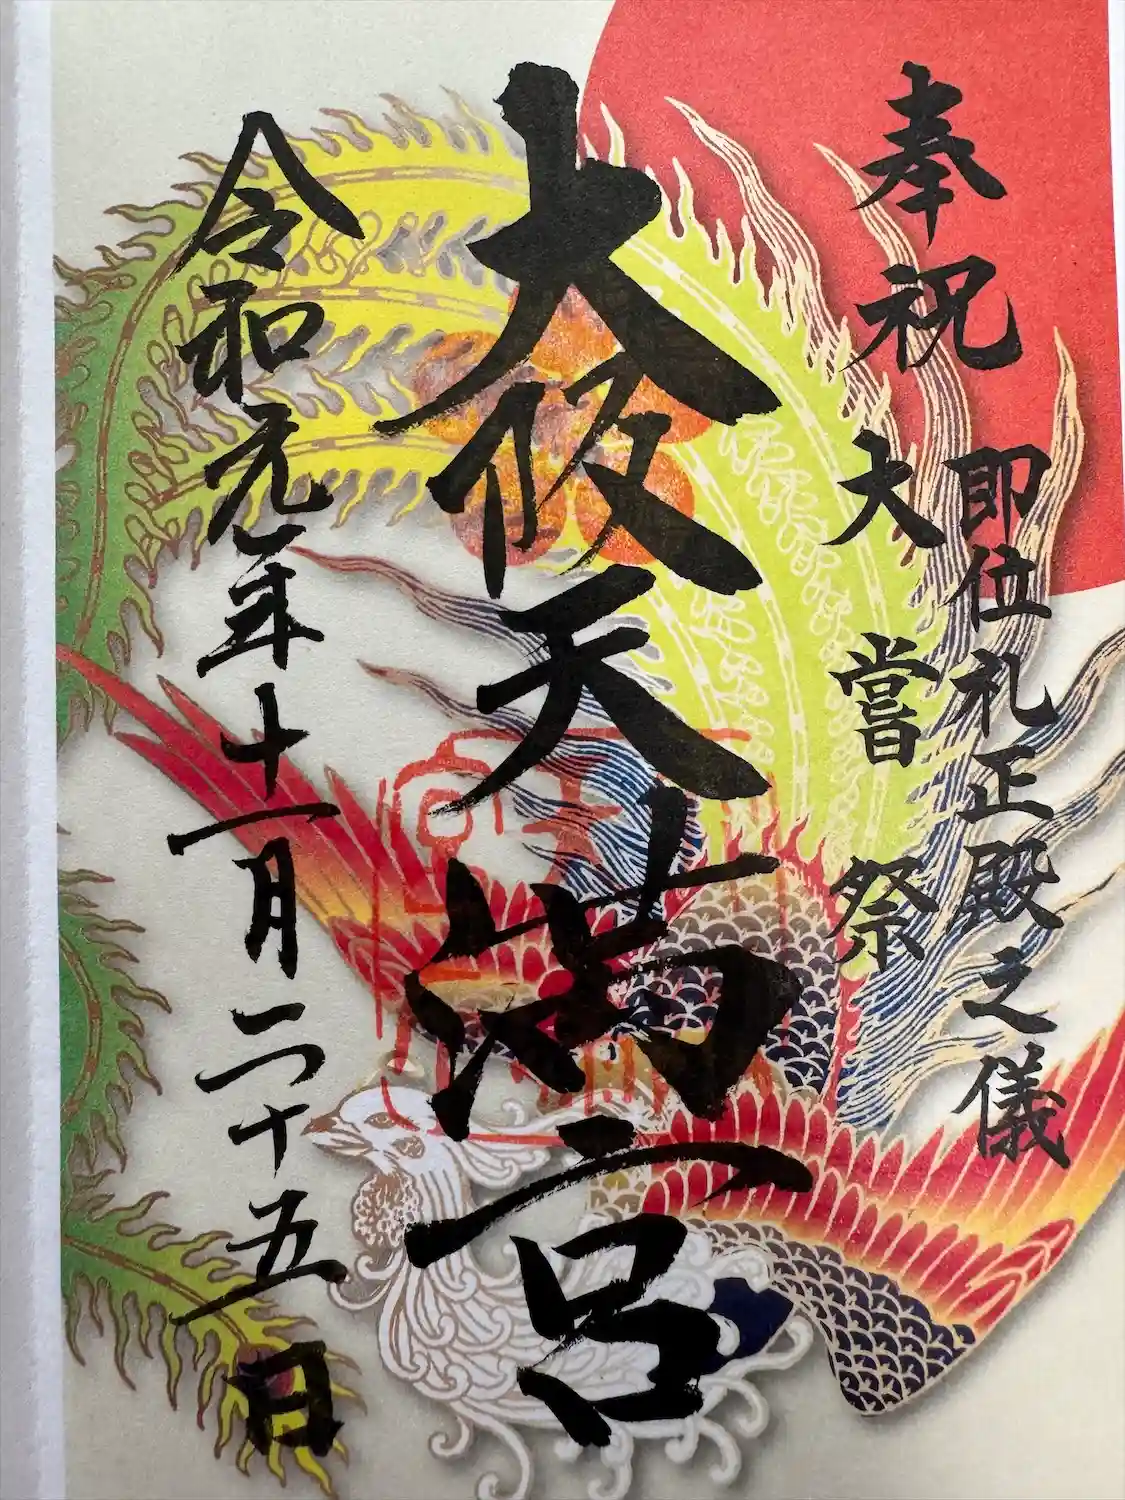 奉祝
即位礼正殿之儀
大嘗祭
大阪天満宮
令和元年十一月二十五日